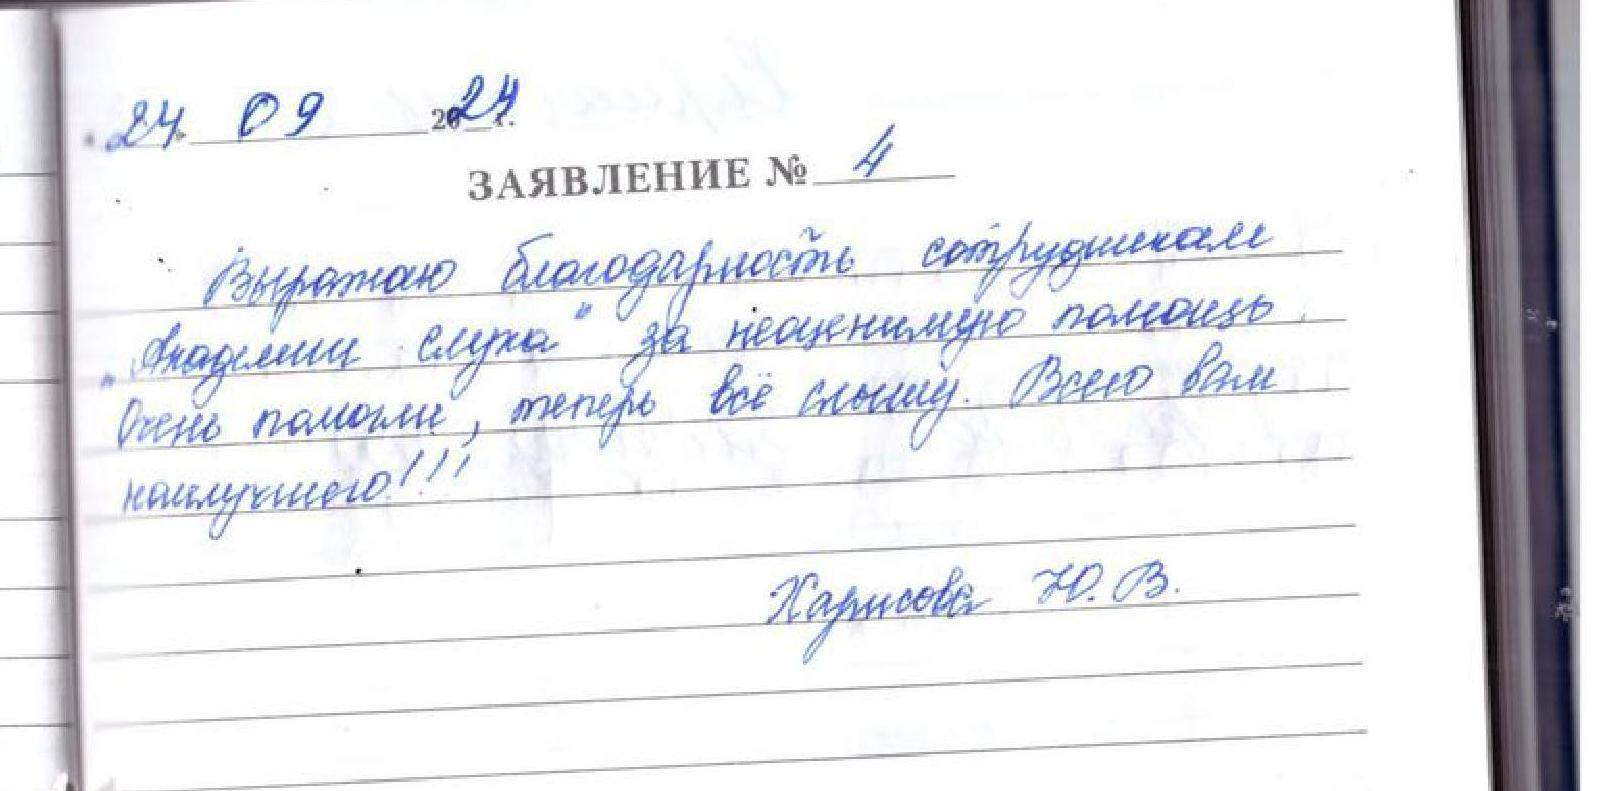 "24" 09 2024 г.
ЗАЯВЛЕНИЕ № 4
Выражаю благодарность сотрудникам
"Академии слуха" за неоценимую помощь.
Очень помогли, теперь всё слышу. Всего вам
наилучшего!!!
Харисова Ю. В.